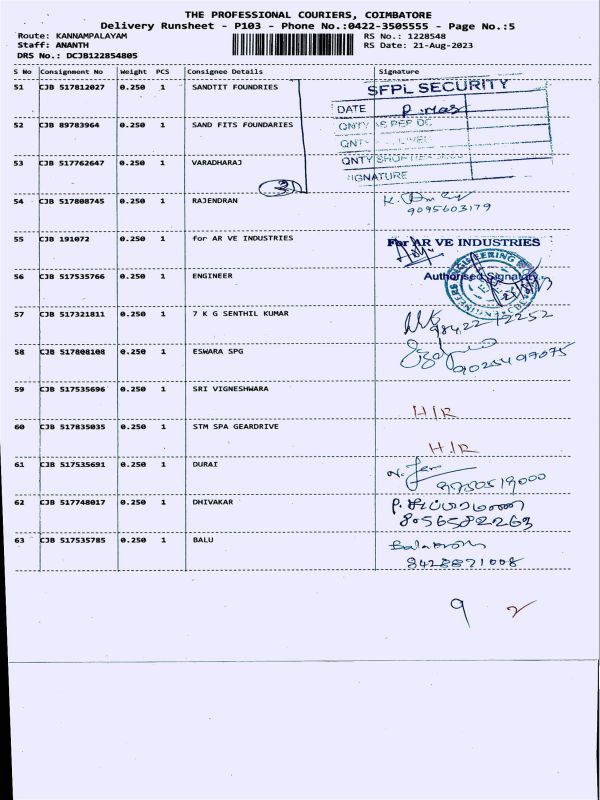 THE PROFESSIONAL COURIERS, COIMBATORE
Delivery Runsheet - P103 - Phone No.:0422-3505555 - Page No.:5
Route: KANNAMPALAYAM RS No.: 1228548
Staff: ANANTH RS Date: 21-Aug-2023
DRS No.: DCJB122854805
S No Consignment No Weight PCS Consignee Details Signature
51 CJB 517812027 0.250 1 SANDTIT FOUNDRIES
SFPL SECURITY
DATE
52 CJB 89783964 0.250 1 SAND FITS FOUNDARIES
QNTY AS PER DC
QNTY
53 CJB 517762647 0.250 1 VARADHARAJ
QNTY
SIGNATURE
3
54 CJB 517808745 0.250 1 RAJENDRAN
9095603179
55 CJB 191072 0.250 1 for AR VE INDUSTRIES For AR VE INDUSTRIES
56 CJB 517535766 0.250 1 ENGINEER Authorised Signatory
57 CJB 517321811 0.250 1 7 K G SENTHIL KUMAR
98422 12252
58 CJB 517808108 0.250 1 ESWARA SPG
9025499075
59 CJB 517535696 0.250 1 SRI VIGNESHWARA
H/R
60 CJB 517835035 0.250 1 STM SPA GEARDRIVE
H/R
61 CJB 517535691 0.250 1 DURAI
9750519000
62 CJB 517748017 0.250 1 DHIVAKAR
8056582263
63 CJB 517535785 0.250 1 BALU
9428871008
9 2